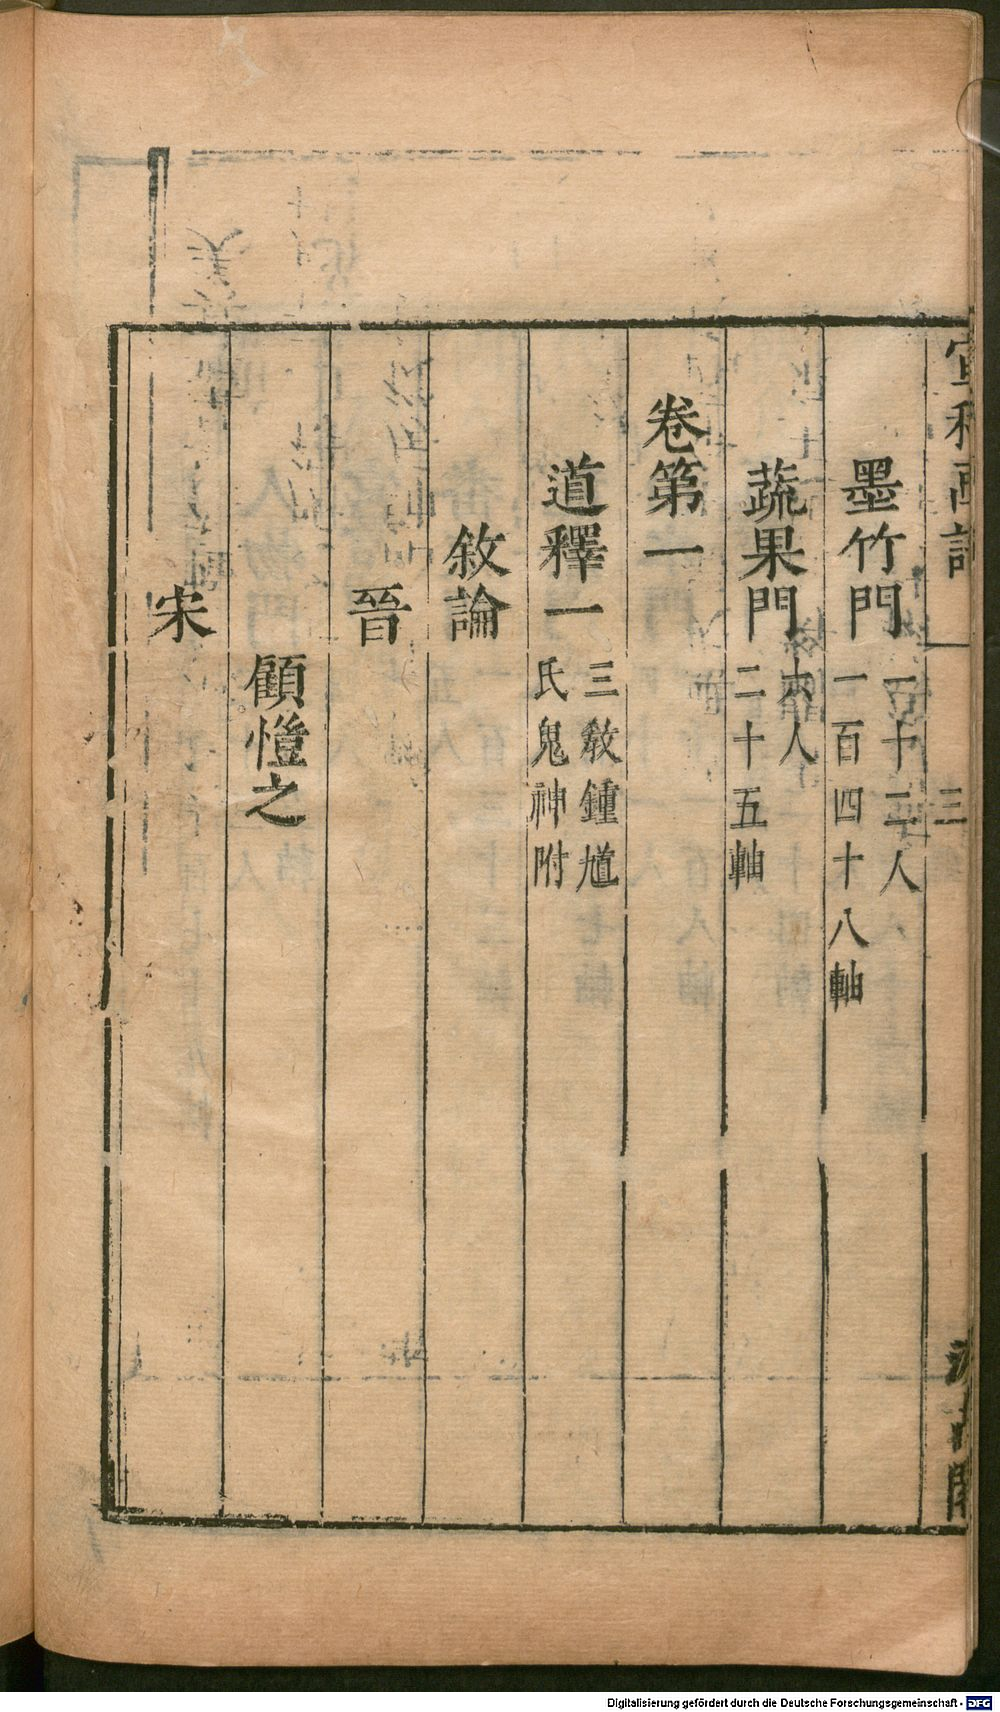 宣和画譜 三 汲古閣
墨竹門 一十二人
一百四十八軸
蔬果門 六人
二十五軸
卷第一
道釋一 三教鍾馗
氏鬼神附
敘論
晉
顧愷之
宋
Digitalisierung gefördert durch die Deutsche Forschungsgemeinschaft - DFG